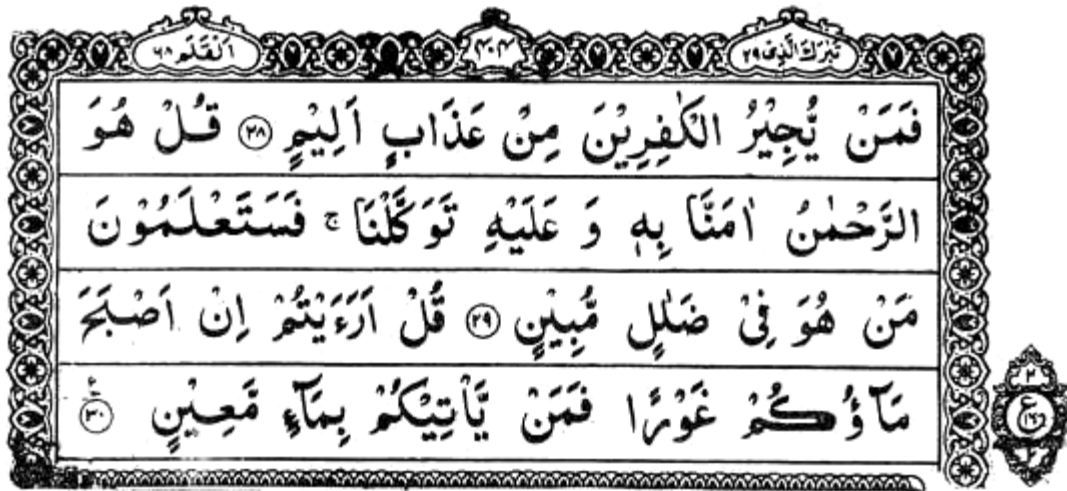 تبٰرك الّذی ۲۹
القلم ۶۸
فَمَنْ يُّجِيْرُ الْكٰفِرِيْنَ مِنْ عَذَابٍ اَلِيْمٍ ۲۸ قُلْ هُوَ
الرَّحْمٰنُ اٰمَنَّا بِهٖ وَ عَلَيْهِ تَوَكَّلْنَا ۚ فَسَتَعْلَمُوْنَ
مَنْ هُوَ فِیْ ضَلٰلٍ مُّبِيْنٍ ۲۹ قُلْ اَرَءَيْتُمْ اِنْ اَصْبَحَ
مَآؤُكُمْ غَوْرًا فَمَنْ يَّاْتِيْكُمْ بِمَآءٍ مَّعِيْنٍ ۳۰
۲
ع
۲